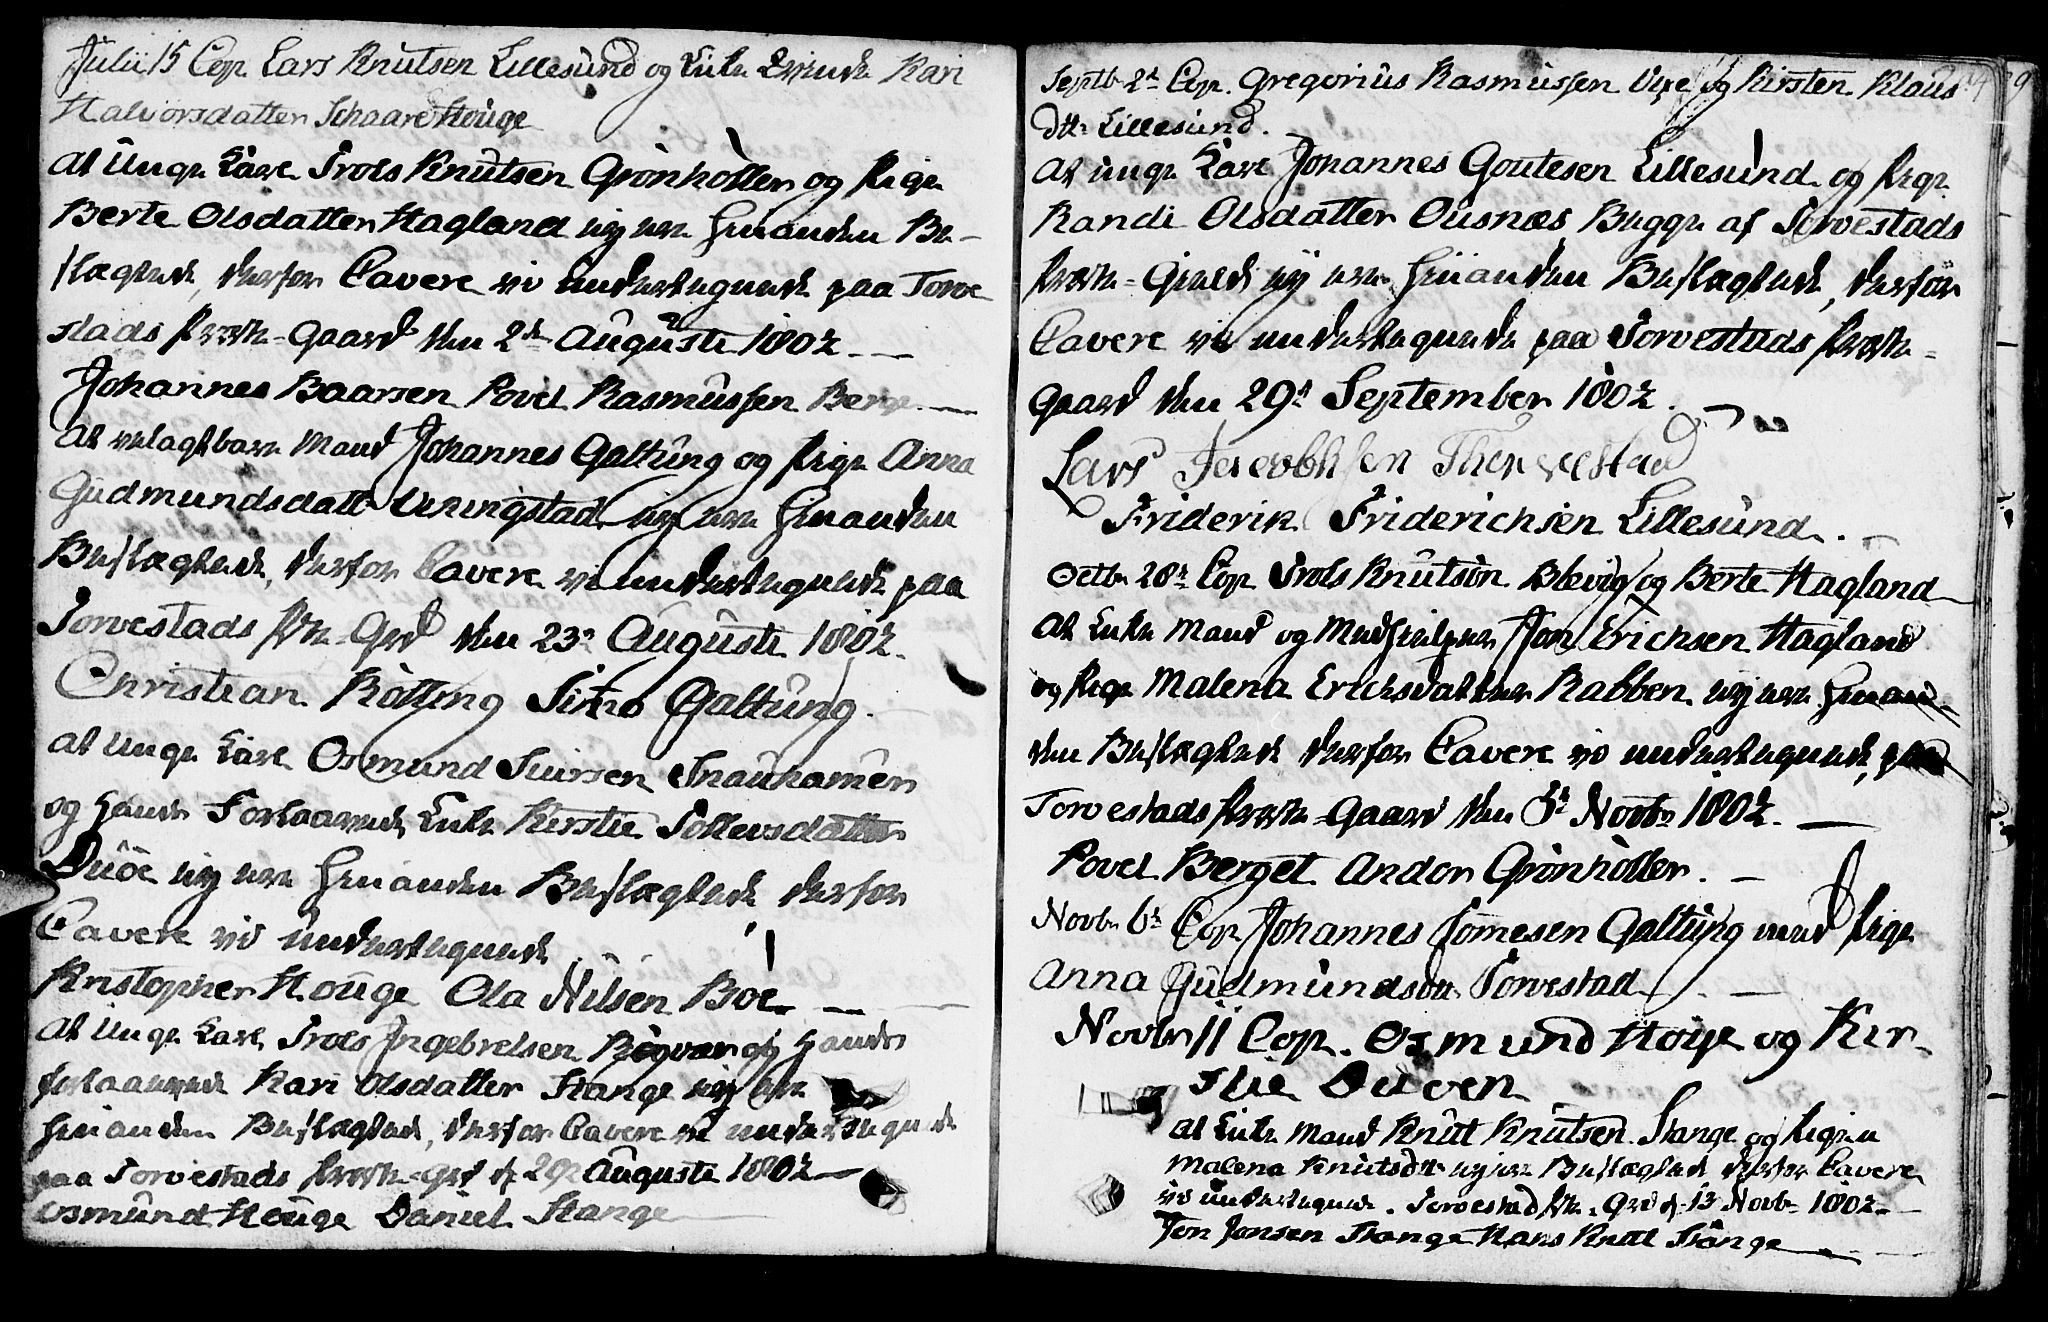 Julii 15 Cop. Lars Knutsen Lillesund og Enke Qvinde Kari
Halvorsdatter Schaare Houge
At Unge Karl Trols Knutsen Grønhøller og Pige
Berte Olsdatter Hagland ey ere hinanden Be-
slægtede, derfor Cavere vi undertegnede paa Torve
stads Præste-Gaard den 2de Augusti 1802
Johannes Baarsen Povel Rasmussen Berge
At velagtbare Mand Johannes Galtung og Pige Anna
Gudmundsdatt. ey ere hinanden
Beslægtede, derfor Cavere vi undertegnede paa
Torvestads Pr. Grd den 23de Augusti 1802
Christian Røtting Simo Galtung
At Unge Karl Osmund Siursen Snauhamer
og hands Forlaavede Enke Kirstie Tollevsdatter
Duöe ey ere hinanden Beslægtede derfor
Cavere vi undertegnede
Kristopher Houge Ola Nilsen Böe
At Unge Karl Trols Ingebretsen og hands
forlaavede Kari Olsdatter Stange ey ere
hinanden Beslægtede, derfor Cavere vi undertegnede
paa Torvestads Præste-grd d. Augusti 1802
Osmund Houge Daniel Stange
Septb. 2d Cop. Gregorius Rasmussen og Kirsten Klaus
dtr. Lillesund.
At unge Karl Johannes Goutesen Lillesund og Pige
Randi Olsdatter Ousnæs Begge af Torvestads
Præste-Gield ey ere hinanden Beslægtede, derfor
Cavere vi undertegnede paa Torvestads Præste-
gaard den 29d September 1802
Lars
Friderik Friderichsen Lillesund.
Octb. 28d Cop Trols Knutsøn Blevig og Berte Hagland
At Enke Mand og Medhielper Jon Erichsen Hagland
og Pige Malena Erichsdatter Rabben ey ere hinan-
den Beslægtede derfor Cavere vi undertegnede, paa
Torvestads Præste-Gaard den Novb. 1802
Povel Berget Andor Grønhøller.
Novb. 6d Cop. Johannes Galtung med Pige
Anna Gudmundsdtr. Torvestad
Novbr 11 Cop. Osmund og Kir-
stie Duöen
At Enke Mand Knut Knutsen Stange og Pigen
Malena Knutsdtr. ey ere Beslægtede derfor Cavere
vi undertegnede. Torvestad Pr. Grd d. 13 Novb. 1802
Jon Jonsen Stange Hans Knut Stange